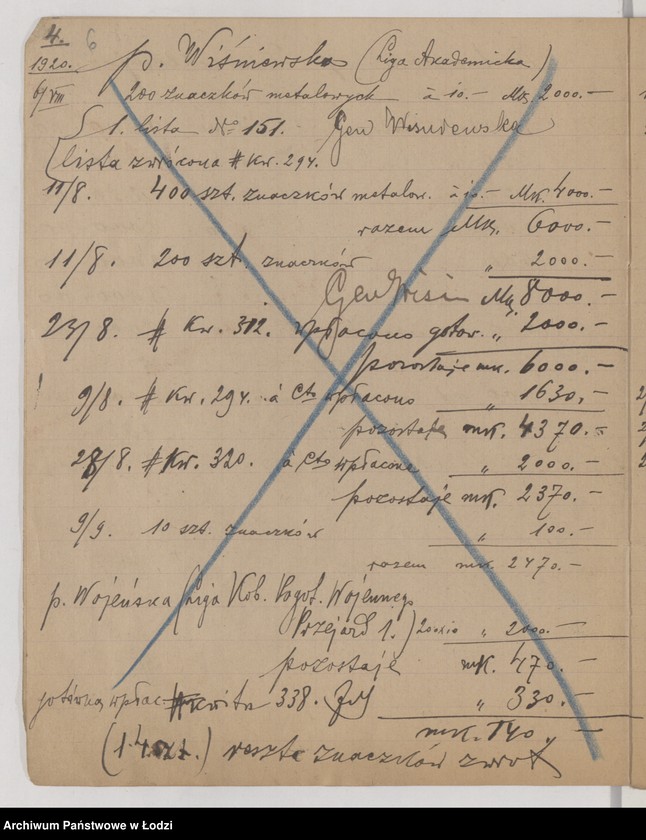 4. 6
1920. p. Wiśniewska (Liga Akademicka)
6/VIII 200 znaczków metalowych à 10.- Mk. 2000.-
1. lista № 151. Gen Wiśniewska
lista zwrócona # Kw. 294.
11/8. 400 szt. znaczków metalow. à 10.- Mk. 4000.-
razem Mk. 6000.-
11/8. 200 szt. znaczków „ 2000.-
Gen Wiśn Mk. 8000.-
23/8. # Kw. 312. wpłacono gotow. „ 2000.-
pozostaje mk. 6000.-
9/8. # Kw. 294. à Cto wpłacono „ 1630.-
pozostaje mk. 4370.-
28/8. # Kw. 320. à Cto wpłacone „ 2000.-
pozostaje mk. 2370.-
9/9. 10 szt. znaczków „ 100.-
razem mk. 2470.-
p. Wojeńska (Liga Kob. Pogot. Wojennego
Przejazd 1.) 200 à 10 „ 2000.-
pozostaje mk. 470.-
gotówką wpłac # kwitu 338. „ 330.-
mk. 140 „ -
(14 szt.) resztę znaczków zwrot
Archiwum Państwowe w Łodzi